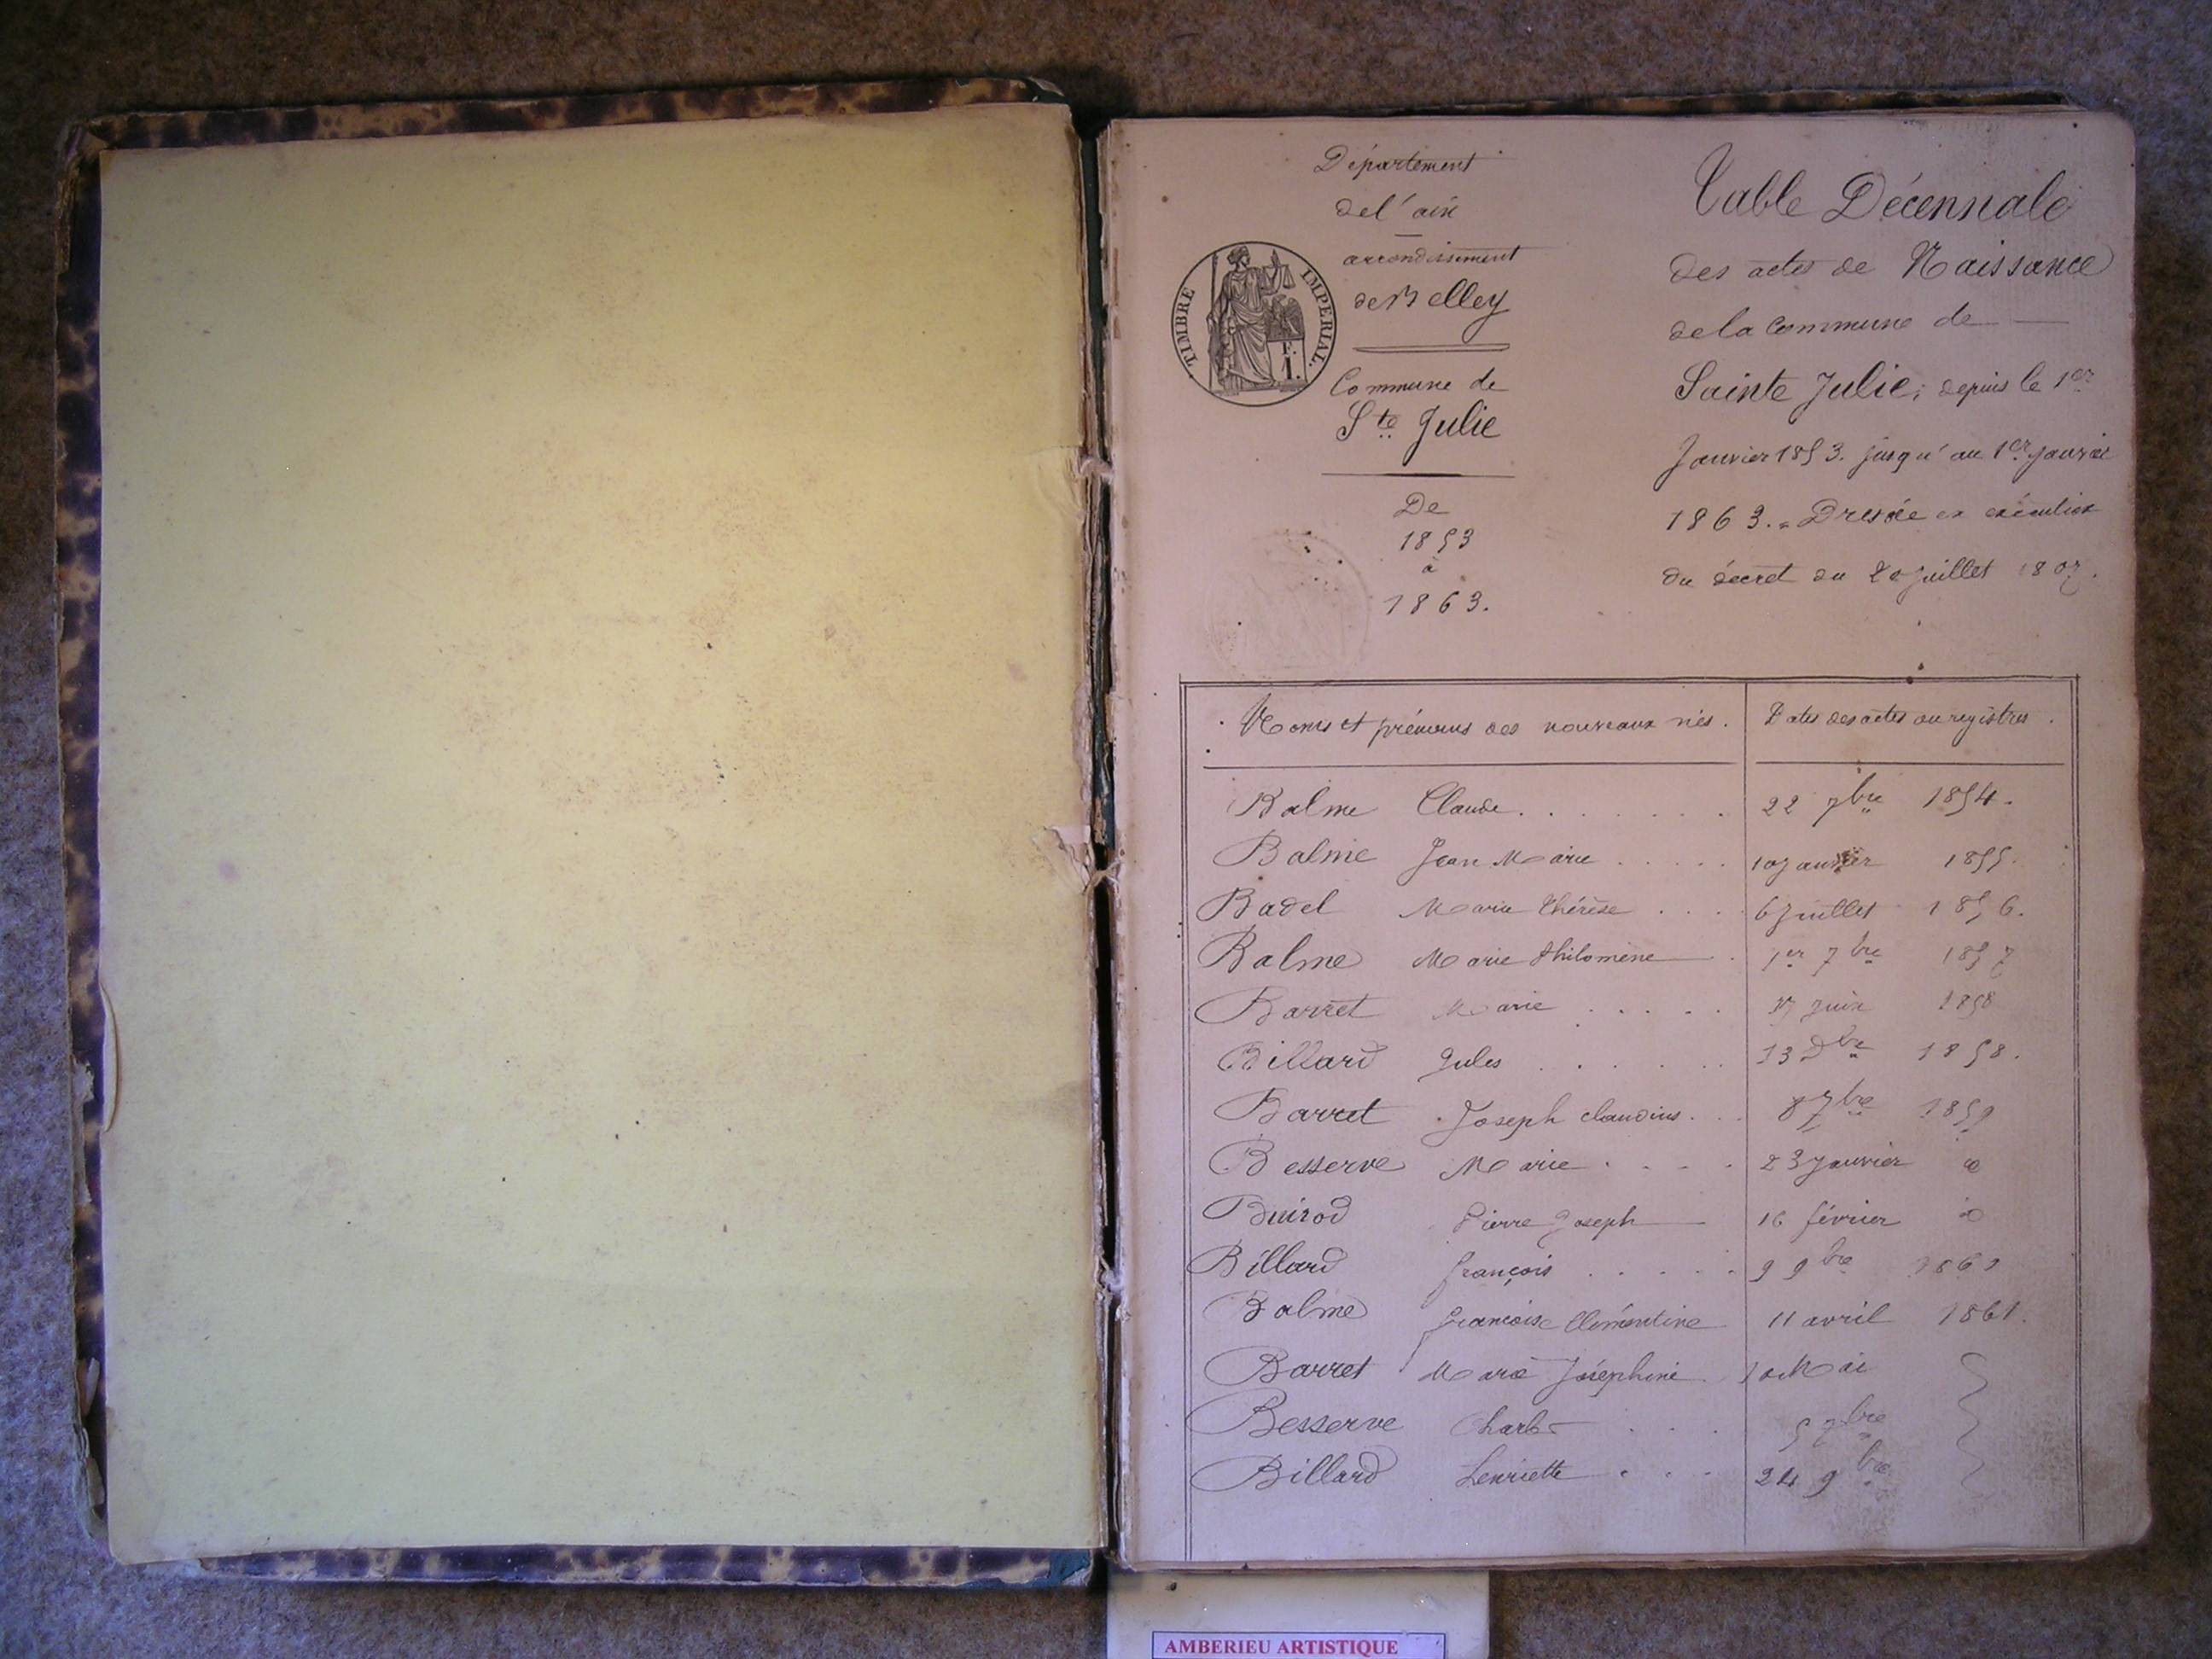 Département
de l'ain
arrondissement
de Belley
TIMBRE IMPERIAL.
F. I.
Commune de
Ste Julie
De
1853
à
1863.
Table Décennale
des actes de Naissance
de la Commune de
Sainte Julie, depuis le 1er
Janvier 1853. jusqu'au 1er janvier
1863. Dressée en exécution
du décret du 20 juillet 1807.
Noms et prénoms des nouveaux nés. Dates des actes ou registres.
Balme Claude 22 7bre 1854.
Balme Jean Marie 10 janvier 1855.
Badel Marie Thérèse 6 Juillet 1856.
Balme Marie Philomène 1er 7bre 1857
Barret Marie juin 1858
Billard Jules 13 Dbre 1858.
Barret Joseph claudius 8 7bre 1859
Besserve Marie 23 Janvier
Buirod Pierre Joseph 16 février
Billard françois 9 9bre
Balme françoise Clémentine 11 avril 1861.
Barret Marie Joséphine 10 Mai
Besserve Charles 5 7bre
Billard henriette 24 9bre
AMBERIEU ARTISTIQUE